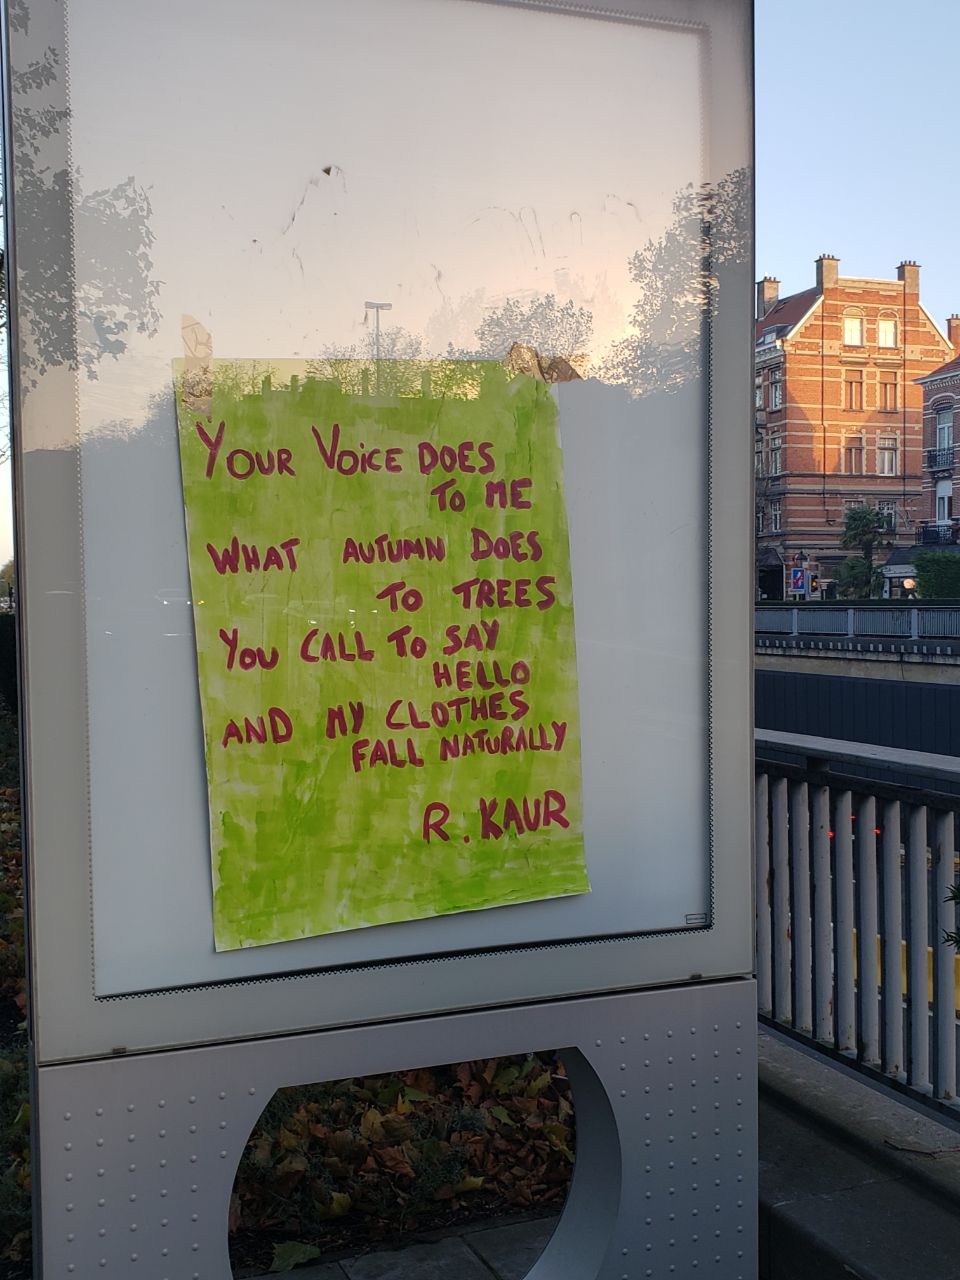 Your Voice DOES
TO ME
WHAT AUTUMN DOES
TO TREES
You CALL To SAY
HELLO
AND MY CLOTHES
FALL NATURALLY
R. KAUR